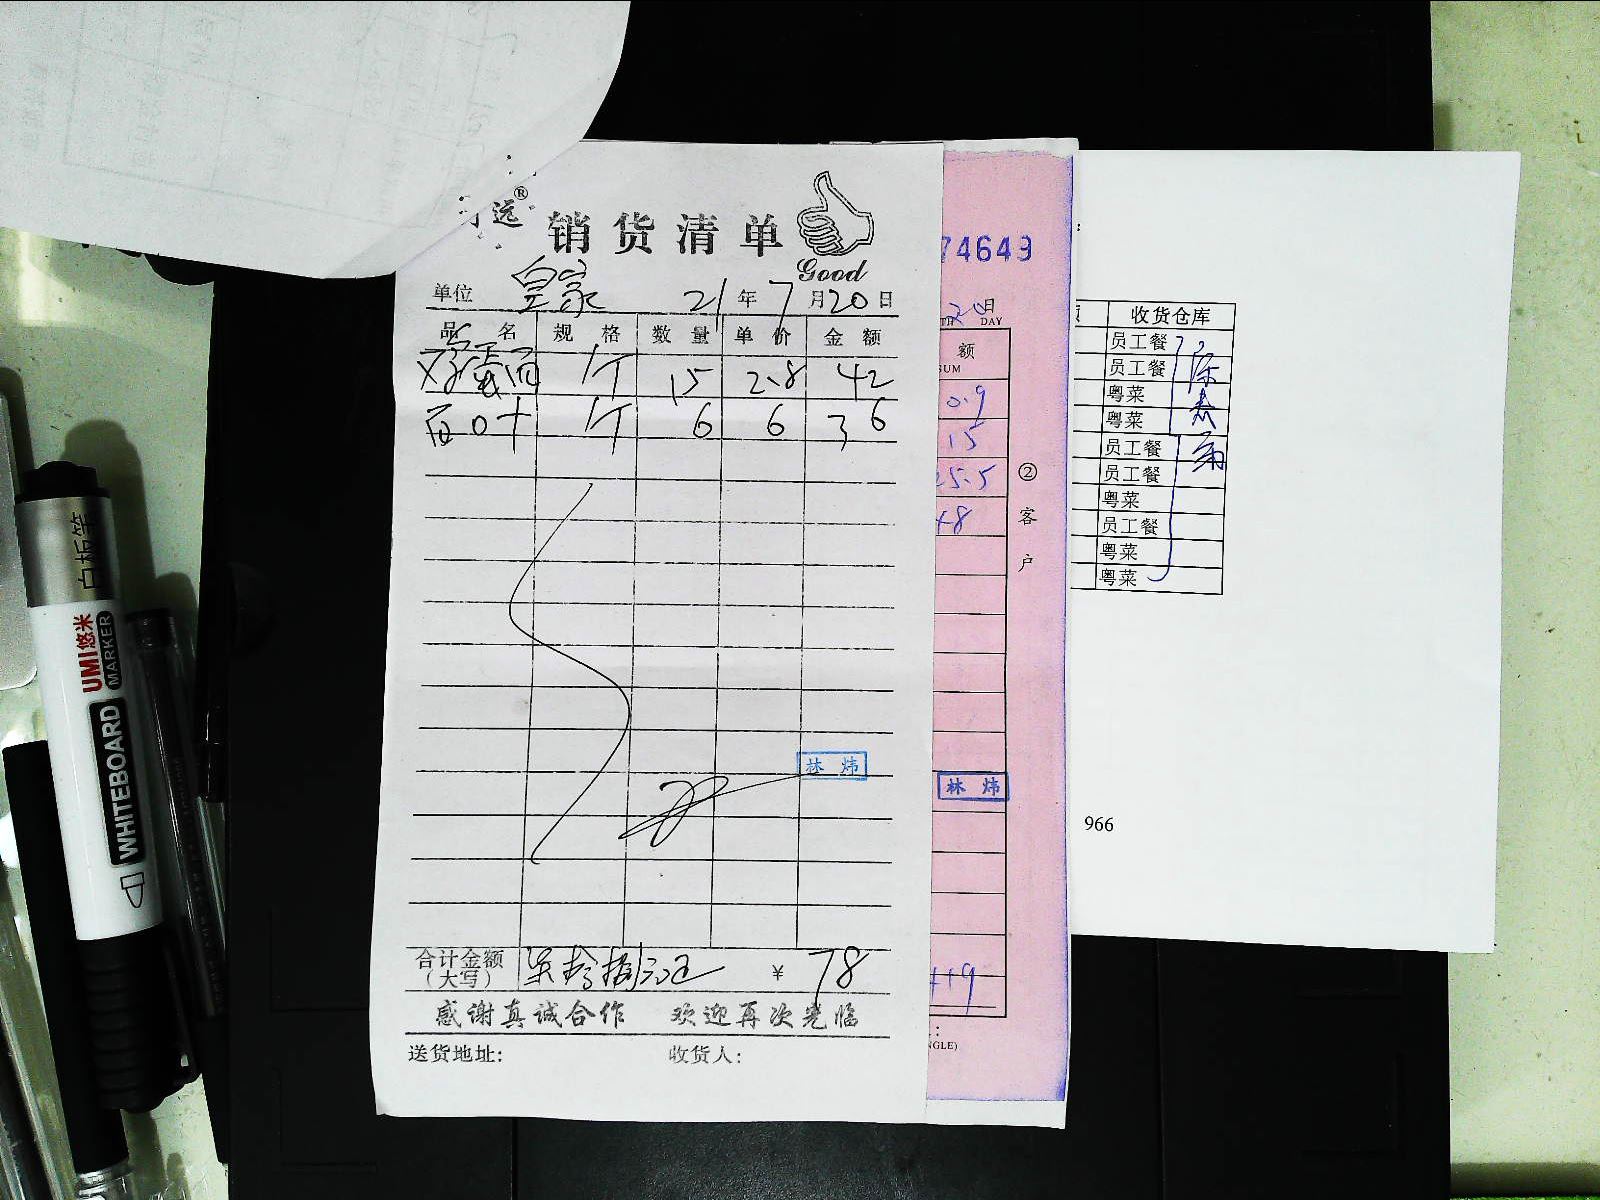 远®
销货清单
Good
单位 皇家 21年7月20日
品名 规格 数量 单价 金额
鸡蛋面 1个 15 2.8 42
1个 6 6 36
林炜
合计金额（大写） 柒拾捌元正 ￥ 78
感谢真诚合作 欢迎再次光临
送货地址： 收货人：
74649
20日
DAY
额
SUM
0.9
15
25.5
48
②客户
林炜
419
NGLE)
收货仓库
员工餐
员工餐
粤菜
粤菜
员工餐
员工餐
粤菜
员工餐
粤菜
粤菜
966
白板笔
UMI悠米
MARKER
WHITEBOARD